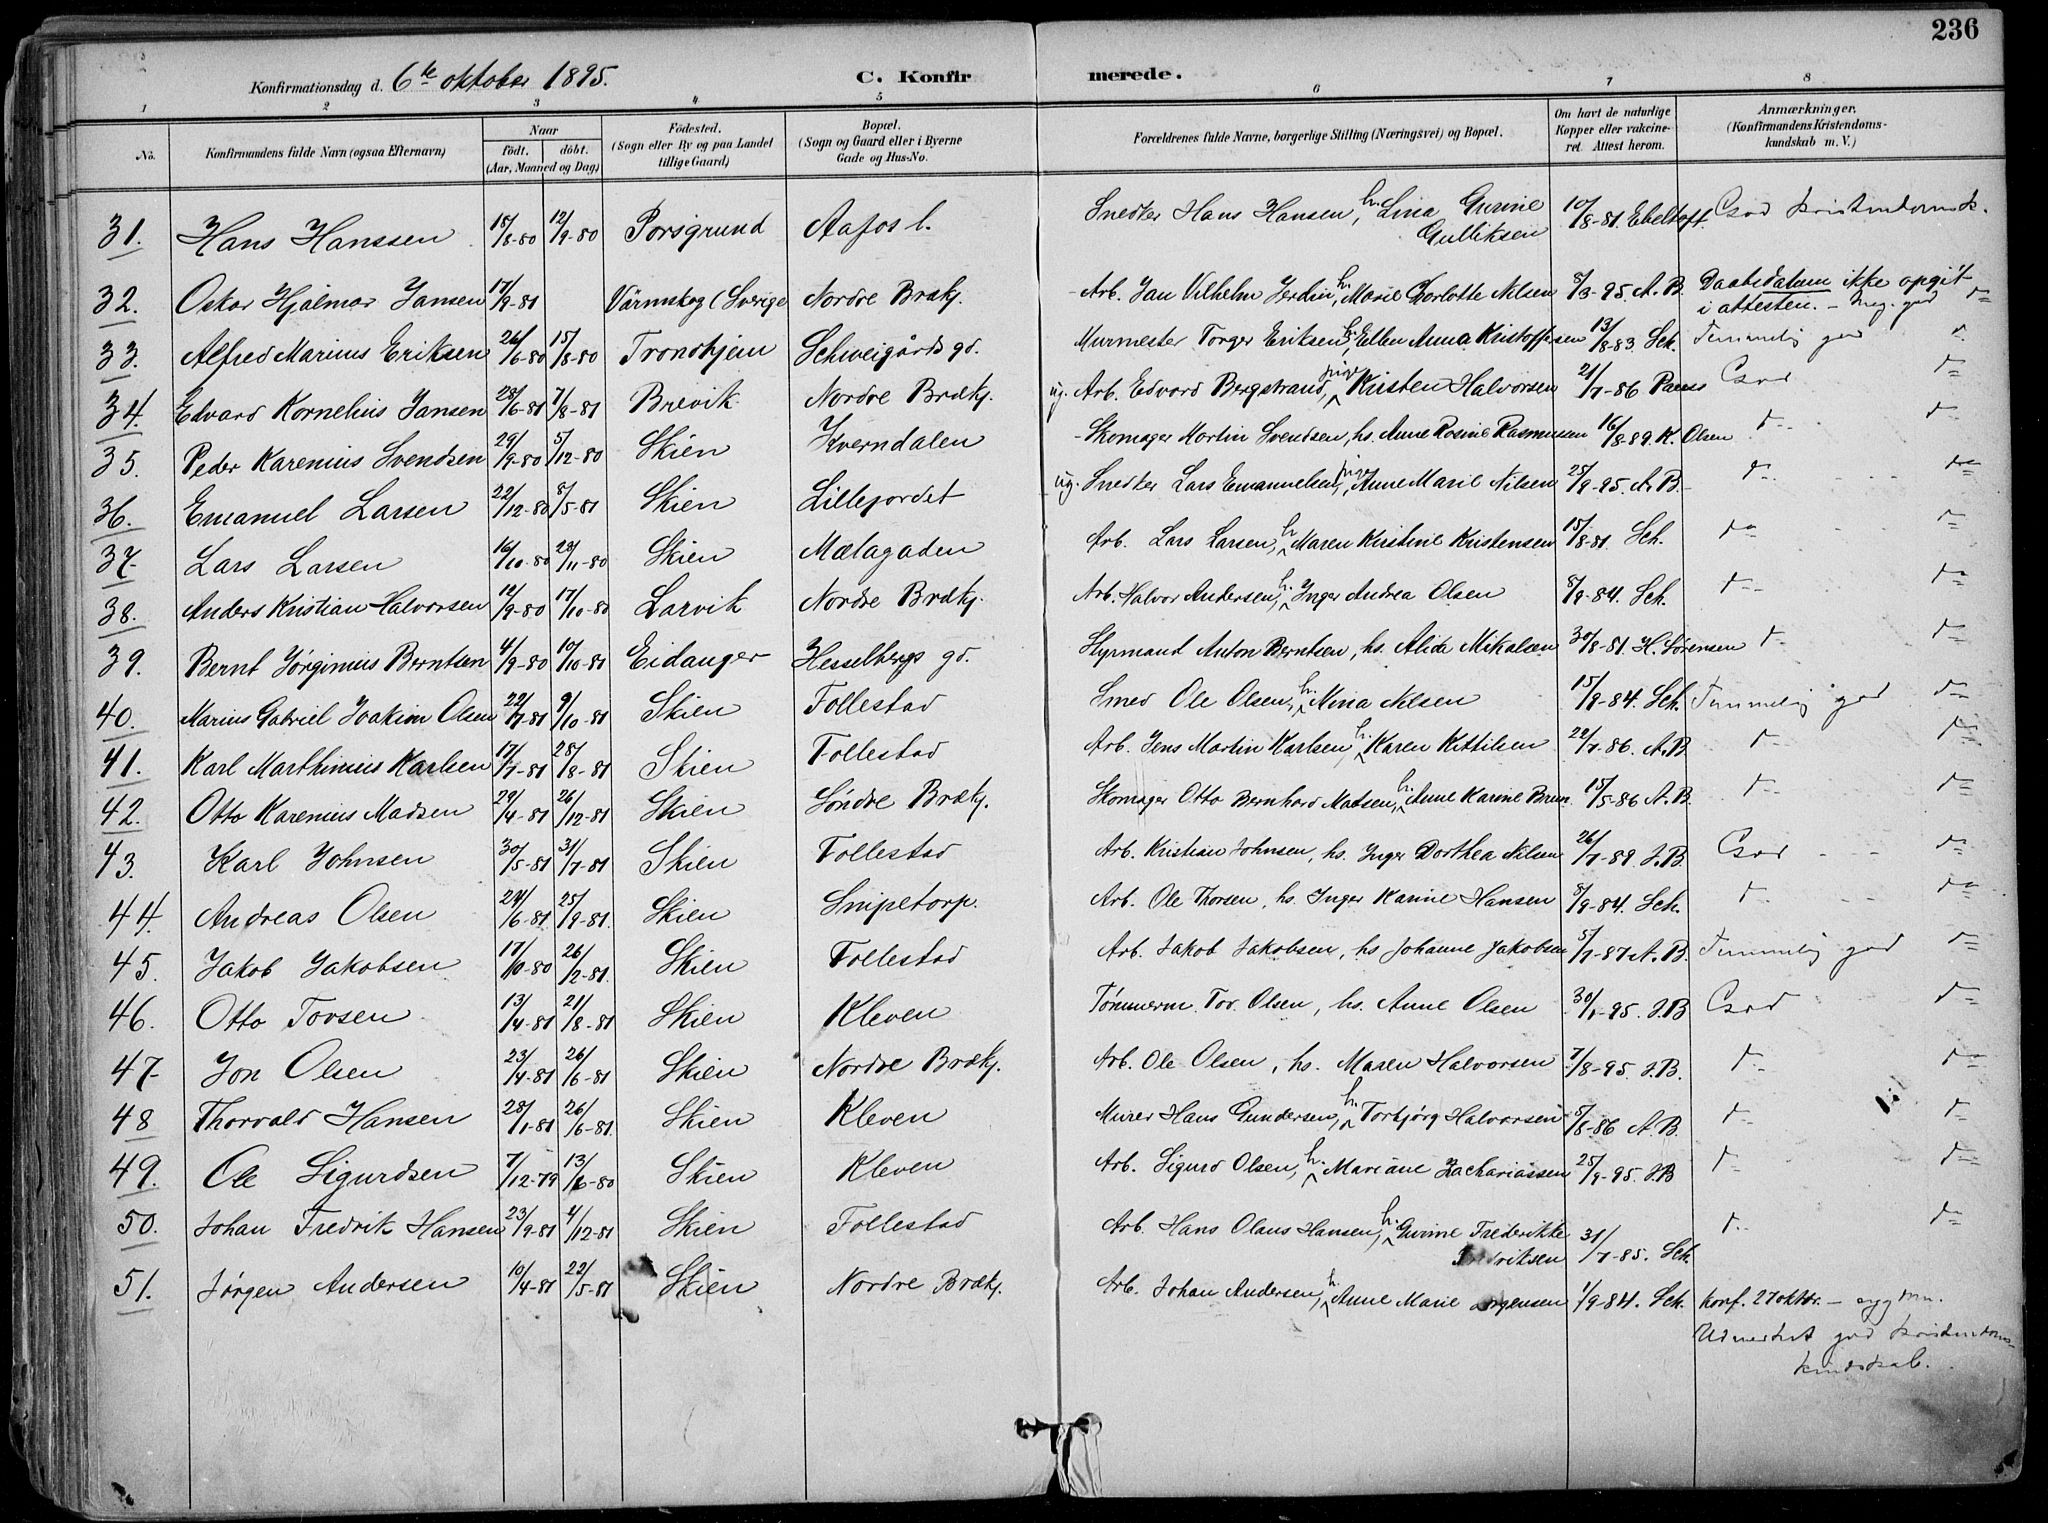 236
Konfirmationsdag d. 6te oktober 1895. C. Konfirmerede.
1 2 3 4 5 6 7 8
No. Konfirmandens fulde Navn (ogsaa Efternavn) Naar født. døbt. (Aar, Maaned og Dag) Fødested. (Sogn eller By og paa Landet tillige Gaard) Bopæl. (Sogn og Gaard eller i Byerne Gade og Hus-No. Forældrenes fulde Navne, borgerlige Stilling (Næringsvei) og Bopæl. Om havt de naturlige Kopper eller vakcineret. Attest herom. Anmærkninger. (Konfirmandens Kristendomskundskab m. V.)
31. Hans Hanssen 15/8-80 12/9-80 Porsgrund Aafos l. Snedker Hans Hansen, h. Lina Gurine Gulliksen 10/8-81. Ebeltoft. God kristendomsk.
32. Oskar Hjalmar Jansen 17/9-81 Värmskog (Sverige Nordre Brækj. Arb. Jan Vilhelm Jerdin, h. Marie Charlotte Nilsen 8/3-95. A. B. Daabsdatum ikke opgit i attesten. - Meg. god d=
33. Alfred Marius Eriksen 26/6-80 15/8-80 Trondhjem Schweigårds gd. Murmester Torger Eriksen, h. Ellen Anna Kristoffersen 13/8-83. Sch. Temmelig god d.
34. Edvard Kornelius Jansen 28/6-81 7/8-81 Brevik Nordre Brækj. ug. Arb. Edvard Bergstrand, pige Kirsten Halvorsen 21/7-86 Paus God d=
35. Peder Karenius Svendsen 29/9-80 5/12-80 Skien Kverndalen Skomager Martin Svendsen, hs. Anne Rosine Rasmusen 16/8-89. K. Olsen d- d=
36. Emanuel Larsen 22/12-80 8/5-81 Skien Lillejordet ug. Snedker Lars Emanuelsen, pige Anne Marie Nilsen 25/9-95. A. B. d- d=
37. Lars Larsen 16/10-80 28/11-80 Skien Mælagaden Arb. Lars Larsen, h. Maren Kristine Kristensen 15/8-81. Sch. d- d=
38. Anders Kristian Halvorsen 12/9-80 17/10-80 Larvik Nordre Brækj. Arb. Halvor Andersen, h. Inger Andrea Olsen 8/9-84. Sch. d- d=
39. Bernt Jørginius Berntsen 4/9-80 10/10-81 Eidanger Hesselbergs gd. Styrmand Anton Berntsen, hs. Alida Mikalsen 30/8-81. H. Sørensen d- d=
40. Marius Gabriel Joakim Olsen 22/7-81 9/10-81 Skien Follestad Smed Ole Olsen, h. Mina Nilsen 15/9-84. Sch. Temmelig god d=
41. Karl Marthinius Karlsen 17/7-81 28/8-81 Skien Follestad Arb. Jens Martin Karlsen, h. Karen Kittilsen 22/7-86. A. B. d- d=
42. Otto Karenius Madsen 29/4-81 26/12-81 Skien Søndre Brækj. Skomager Otto Bernhard Matsen, h. Anne Karine Brun 15/5-86 A. B. d- d=
43. Karl Johnsen 30/5-81 31/7-81 Skien Follestad Arb. Kristian Johnsen, hs. Inger Dorthea Nilsen 26/7-89 J. B. God d=
44. Andreas Olsen 24/6-81 25/9-81. Skien Snipetorp. Arb. Ole Thorsen, hs. Inger Karine Hansen 8/9-84. Sch. d- d=
45. Jakob Jakobsen 17/10-80 26/2-81. Skien Follestad Arb. Jakob Jakobsen, hs Johanne Jakobsen 5/7-87 A. B. Temmelig god d=
46. Otto Torsen 13/4-81 21/8-81 Skien Kleven Tømmerm. Tor. Olsen, hs. Anne Olsen 30/1-95. J. B. God d=
47- Jon Olsen 23/4-81 26/6-81 Skien Nordre Brækj. Arb. Ole Olsen, hs. Maren Halvorsen 7/8-95. J. B. d- d=
48 Thorvald Hansen 28/1-81 26/6-81. Skien Kleven Murer Hans Gundersen, h. Torbjørg Halvorsen 5/8-86 A. B. d- d=
49. Ole Sigurdsen 7/12-79 13/6-80 Skien Kleven Arb. Sigurd Olsen, h. Mariane Zachariassen 25/9-95. J. B d- d=
50. Johan Fredrik Hansen 23/9-81 4/12-81 Skien Follestad Arb. Hans Olaus Hansen, h. Gurine Frederikke Fredriksen 31/7-85. Sch. d- d=
51. Jørgen Andersen 10/4-81 22/5-81 Skien Nordre Brækj. Arb. Johan Andersen, h. Anne Marie Jørgensen 1/9-84. Sch. Konf. 27 oktbr. -
Udmerket god kristendoms-
kundskab.